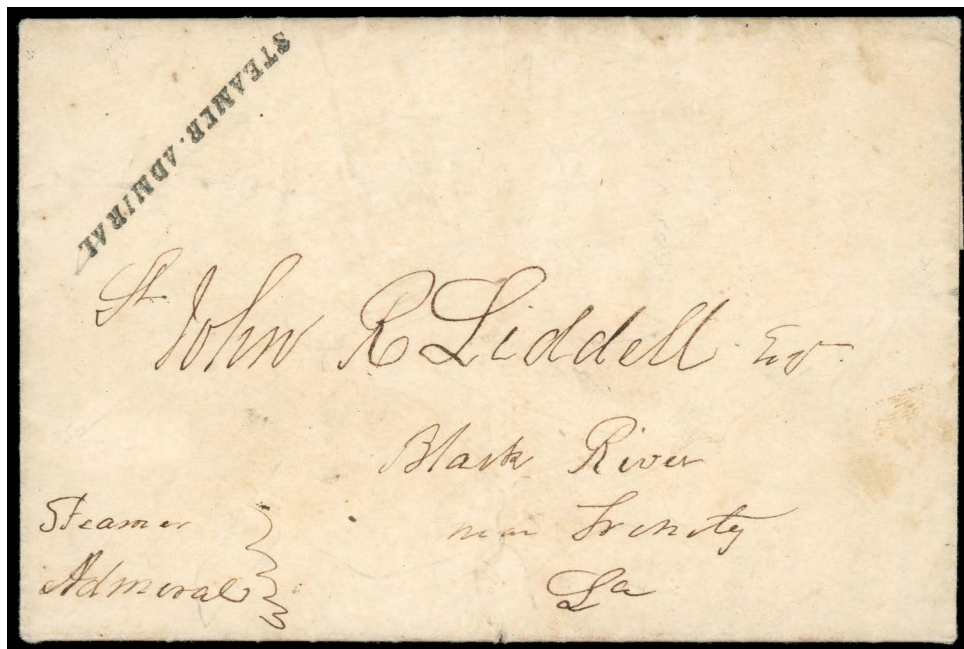 STEAMER. ADMIRAL
St. John R Liddell Esqr.
Black River
near Trinity
La
Steamer
Admiral